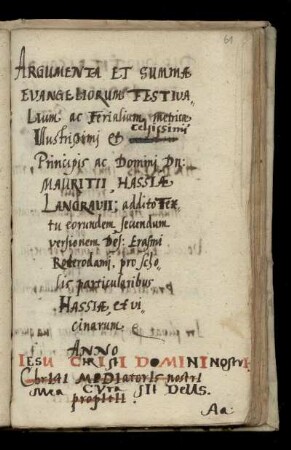 61
ARGUMENTA ET SUMMÆ
EVANGELIORUM FESTIVA
Lium ac Ferialium, metrica
Illustrissimi et Celsissimi
Principis ac Domini, Dn:
MAURITII, HASSIÆ
LANGRAVII; addito Tex
tu eorundem secundum
versionem Des: Erasmi
Roterodami, pro scho
lis particularibus
HASSIÆ, et vi
cinarum.
ANNO
IESU CHRISTI DOMINI Nostri
Christi MEDIatoris nostri
Mea CVra SIt DeUs.
propitii.
Aa